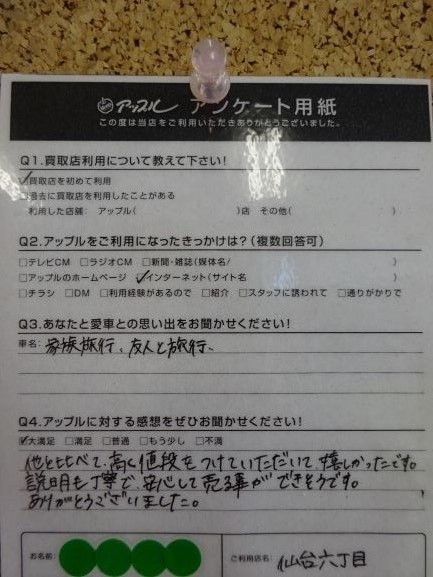 アップル アンケート用紙
この度は当店をご利用いただきありがとうございました。
Q1.買取店利用について教えて下さい!
☑買取店を初めて利用
□過去に買取店を利用したことがある
利用した店舗: アップル( )店 その他( )
Q2.アップルをご利用になったきっかけは?(複数回答可)
□テレビCM □ラジオCM □新聞・雑誌(媒体名/ )
□アップルのホームページ ☑インターネット(サイト名 )
□チラシ □DM □利用経験があるので □紹介 □スタッフに誘われて □通りがかりで
Q3.あなたと愛車との思い出をお聞かせください!
車名: 家族旅行、友人と旅行、
Q4.アップルに対する感想をぜひお聞かせください!
☑大満足 □満足 □普通 □もう少し □不満
他と比べて、高く値段をつけていただいて、嬉しかったです。
説明も丁寧で、安心して売る事ができそうです。
ありがとうございました。
お名前:
ご利用店名: 仙台六丁目